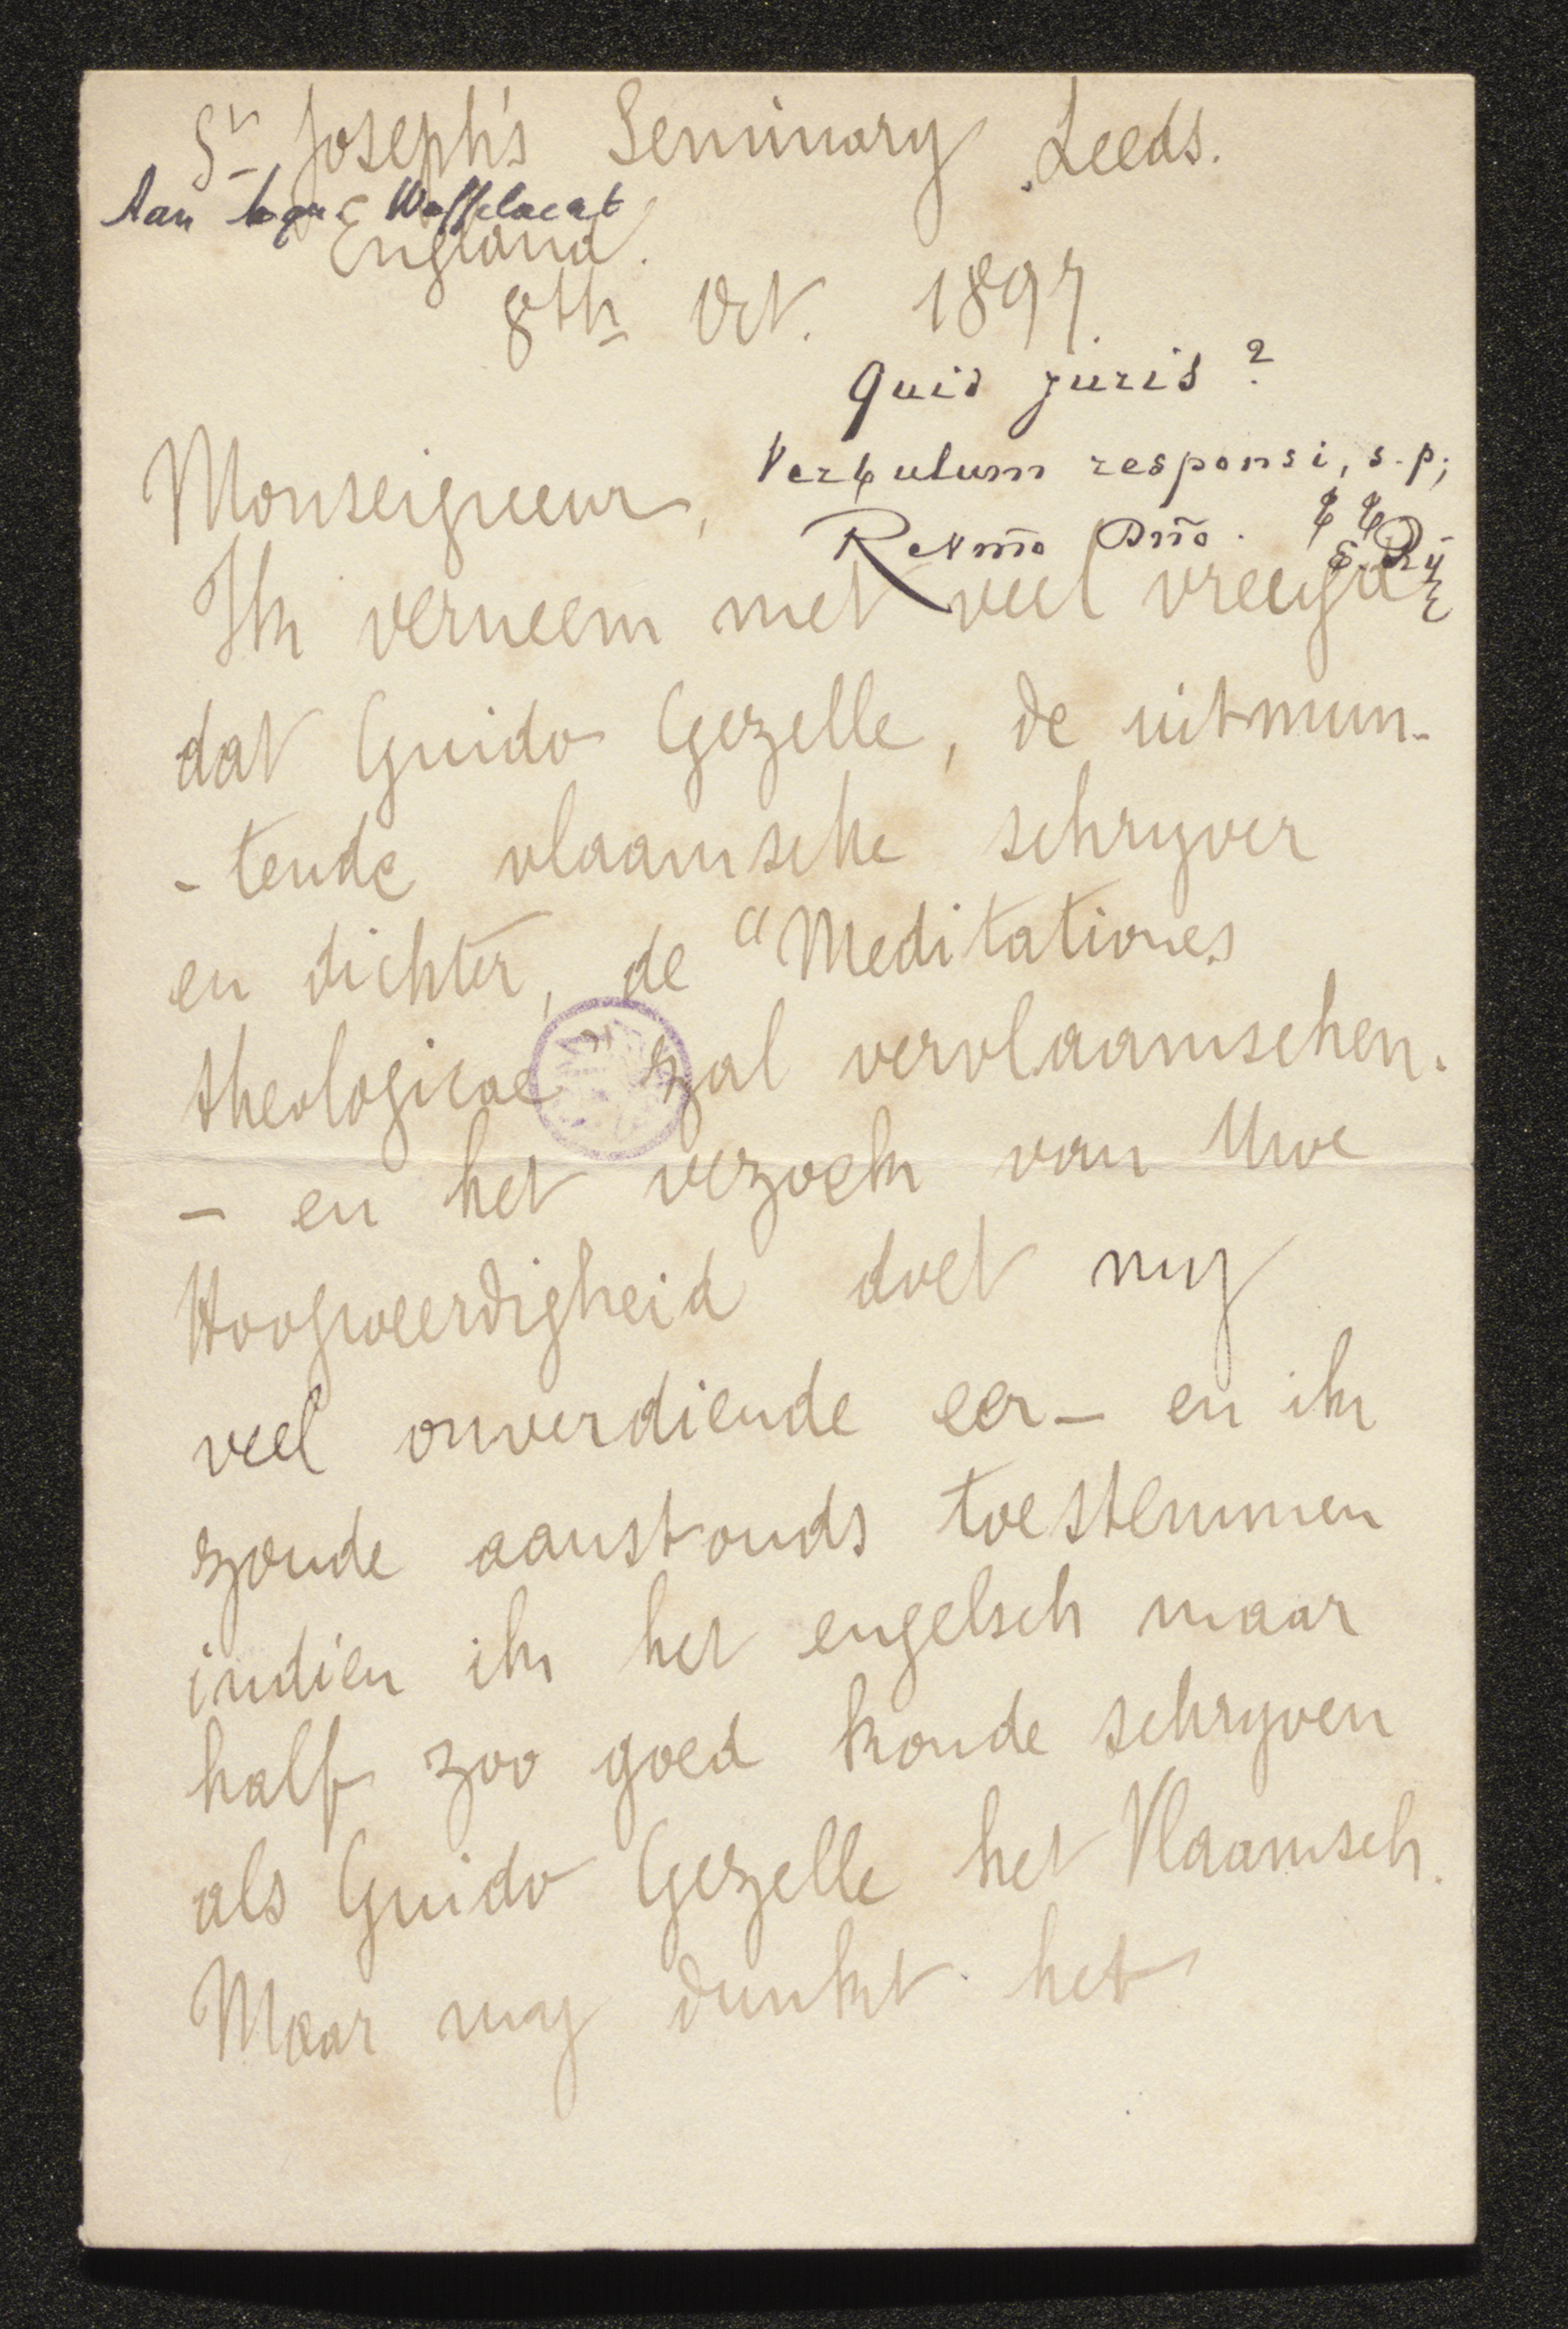 St Joseph's Seminary Leeds.
Aan Mgr Waffelaert
England.
8th Oct. 1897.
Quid juris?
Verbulum responsi, s.p.;
Revmo Dno.
Monseigneur,
Ik verneem met veel vreugde
dat Guido Gezelle, de uitmun-
-tende vlaamsche schryver
en dichter, de "Meditationes
theologicae" zal vervlaamschen.
– en het verzoek van Uwe
Hoogweerdigheid doet my
veel onverdiende eer – en ik
zoude aanstonds toestemmen
indien ik het engelsch maar
half zoo goed konde schryven
als Guido Gezelle het Vlaamsch.
Maar my dunkt het